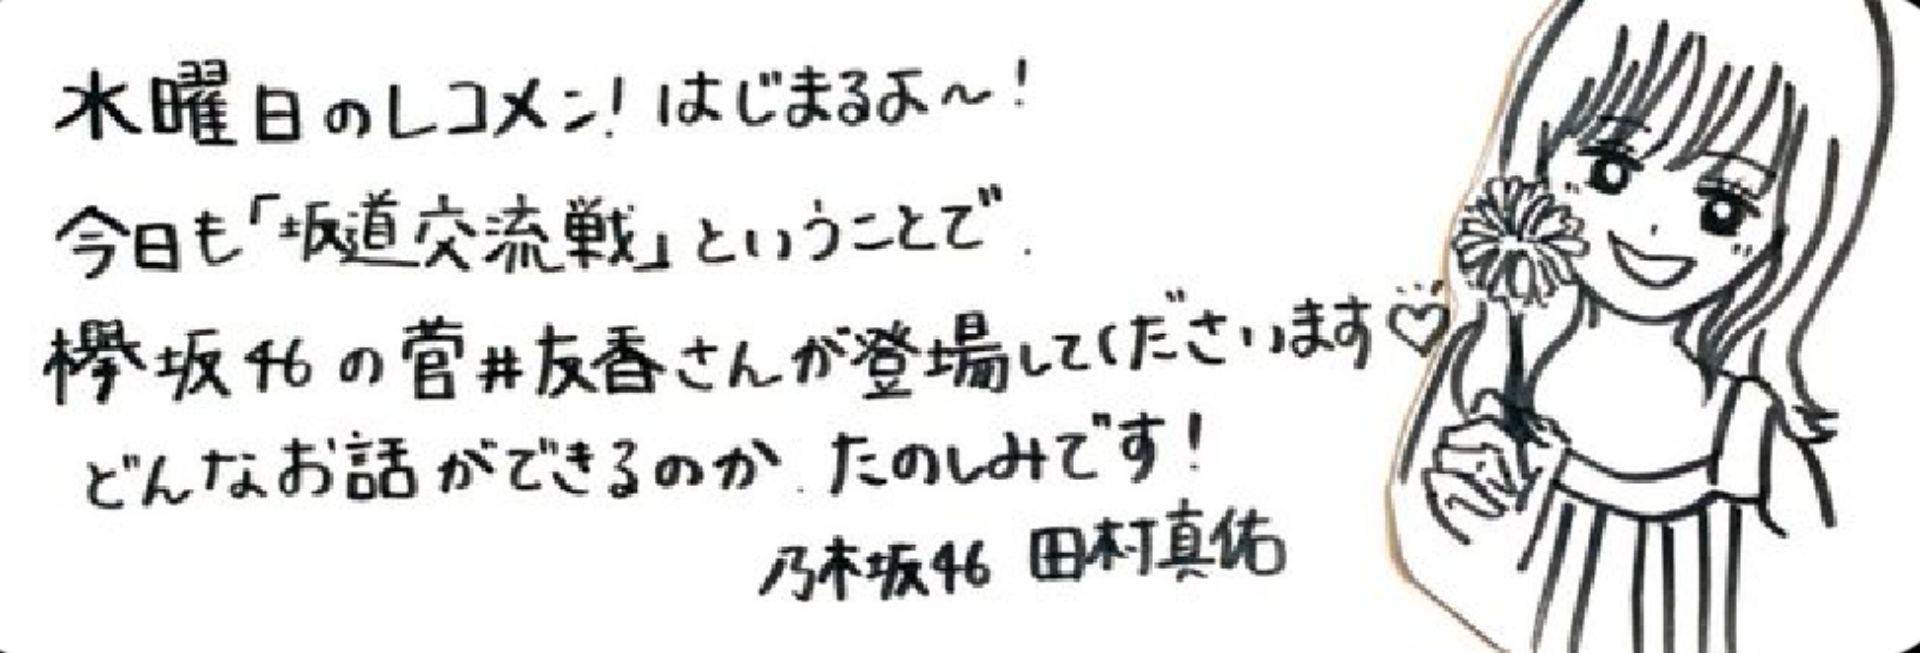 水曜日のレコメン!はじまるよ〜!
今日も「坂道交流戦」ということで.
欅坂46の菅井友香さんが登場してくださいます♡
どんなお話ができるのか.たのしみです!
乃木坂46 田村真佑